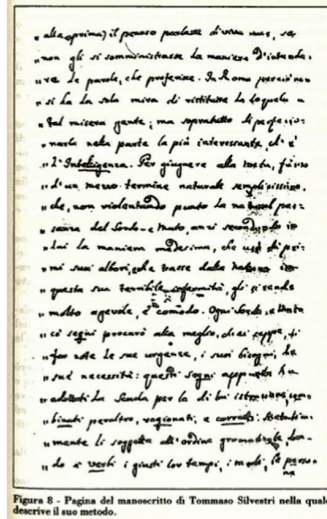 " alla (prima) il penoso parlare di viva voce, se
" non gli si somministrasse la maniera d'intende-
" re le parole, che proferisce. In Roma perciò non
" si ha la sola mira di restituire la loquela a
" tal misera gente; ma sopratutto di perfezio-
" narla nella parte la più interessante, ch'è
" l'Intelligenza. Per giugnere alla meta, fa uso
" d'un mezzo termine naturale semplicissimo,
" che, non violentando punto la natural pos-
" sanza del Sordo-e Muto, anzi secondando in
" lui la maniera medesima, che usò di pri-
" mi suoi albori, che trasse dalla Natura in
" questa sua terribile infermità, gli si rende
" molto agevole, e comodo. Ogni Sordo, e Muto
" ci segni procurò alla meglio, che seppe, di
" far note le sue urgenze, i suoi bisogni, le
" sue necessità: questi segni appunto ha
" adottati la Scuola per la di lui istruzione, com-
" binati peraltro, ragionati, e corretti:
" mente li soggetta all'ordine gramaticale dan-
" do a verbi i giusti lor tempi, i modi, le perso-
ne
Figura 8 - Pagina del manoscritto di Tommaso Silvestri nella quale
descrive il suo metodo.